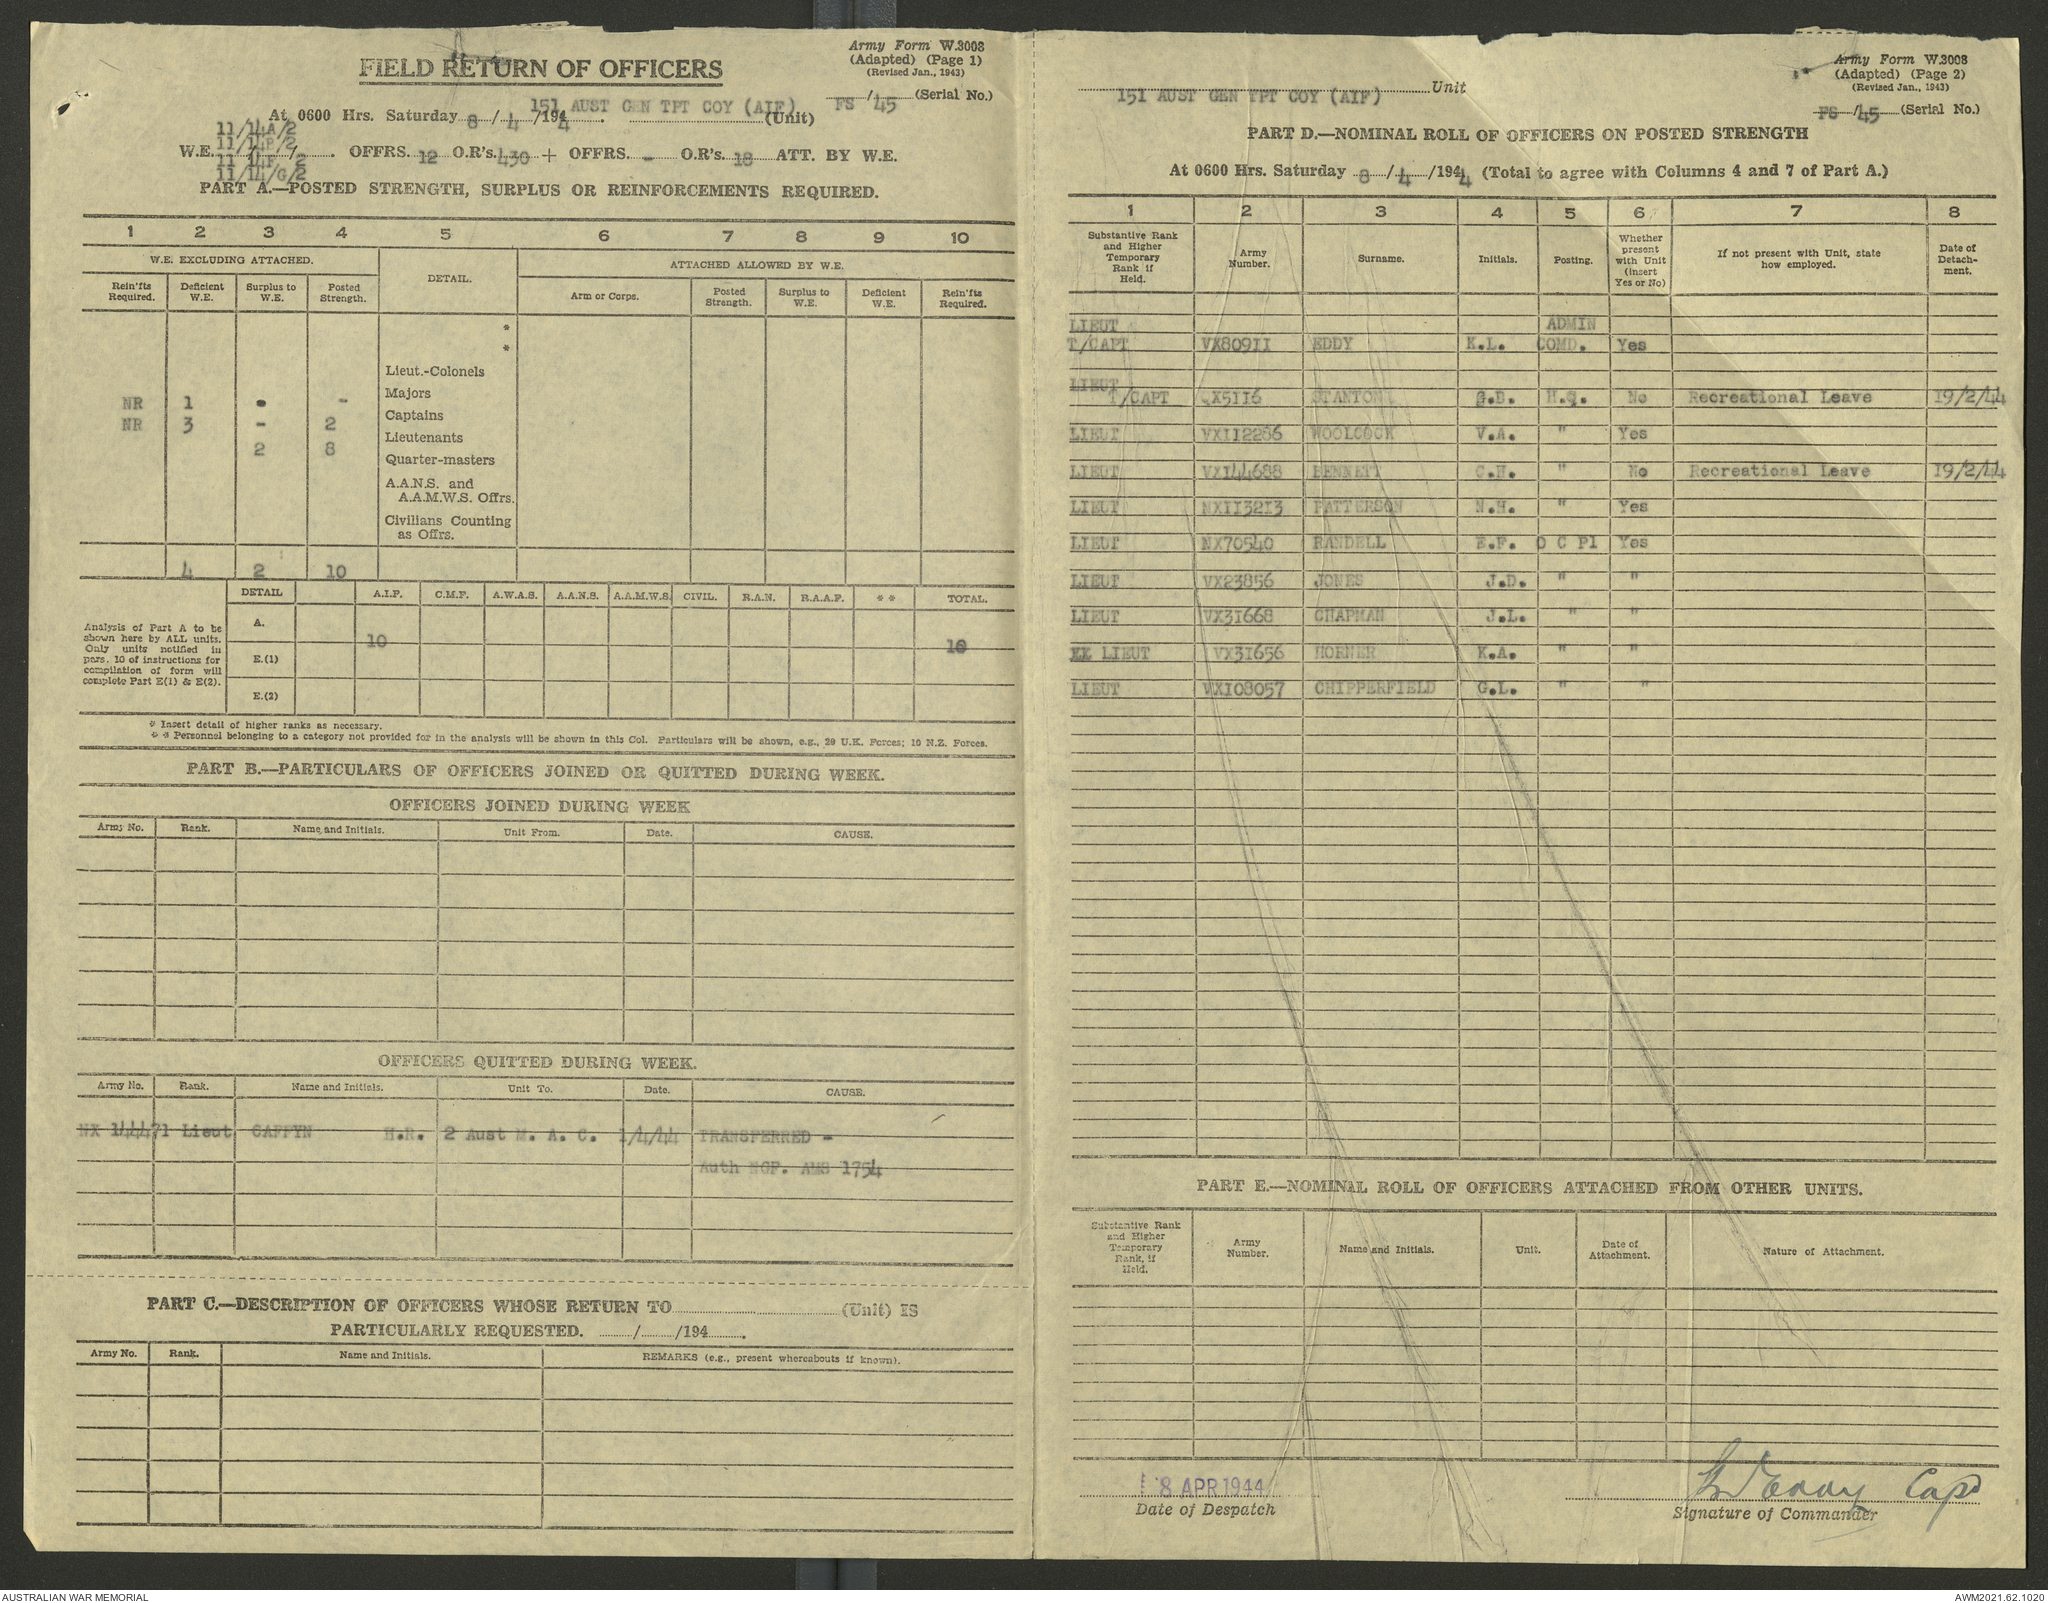 Army Form W.3008
(Adapted) (Page 1)
(Revised Jan., 1943)
FIELD RETURN OF OFFICERS
FS / 45 (Serial No.)
At 0600 Hrs. Saturday 8 / 4 / 1944. 151 AUST GEN TPT COY (AIF) (Unit)
11/14A/2
11/14B/2
W.E. / / . OFFRS. 12 O.R's. 430 + OFFRS. - O.R's. 18 ATT. BY W.E.
11/14F/2
11/14/G/2
PART A.—POSTED STRENGTH, SURPLUS OR REINFORCEMENTS REQUIRED.
1 2 3 4 5 6 7 8 9 10
W.E. EXCLUDING ATTACHED. DETAIL. ATTACHED ALLOWED BY W.E.
Rein'fts Required. Deficient W.E. Surplus to W.E. Posted Strength. Arm or Corps. Posted Strength. Surplus to W.E. Deficient W.E. Rein'fts Required.
*
*
Lieut.-Colonels
Majors
NR 1 - -
Captains
NR 3 - 2
Lieutenants
2 8
Quarter-masters
A.A.N.S. and
A.A.M.W.S. Offrs.
Civilians Counting
as Offrs.
4 2 10
DETAIL A.I.F. C.M.F. A.W.A.S. A.A.N.S. A.A.M.W.S. CIVIL. R.A.N. R.A.A.F. * * TOTAL.
Analysis of Part A to be
shown here by ALL units.
Only units notified in
para. 10 of instructions for
compilation of form will
complete Part E(1) & E(2).
A.
10 10
E.(1)
E.(2)
* Insert detail of higher ranks as necessary.
* * Personnel belonging to a category not provided for in the analysis will be shown in this Col. Particulars will be shown, e.g., 29 U.K. Forces; 10 N.Z. Forces.
PART B.—PARTICULARS OF OFFICERS JOINED OR QUITTED DURING WEEK.
OFFICERS JOINED DURING WEEK
Army No. Rank. Name and Initials. Unit From. Date. CAUSE.
OFFICERS QUITTED DURING WEEK.
Army No. Rank. Name and Initials. Unit To. Date. CAUSE.
NX 144471 Lieut CAFFYN H.R. 2 Aust M. A. C. 1/4/44 TRANSFERRED -
Auth NGF. AMS 1754
PART C.—DESCRIPTION OF OFFICERS WHOSE RETURN TO (Unit) IS
PARTICULARLY REQUESTED. / /194 .
Army No. Rank. Name and Initials. REMARKS (e.g., present whereabouts if known).
Army Form W.3008
(Adapted) (Page 2)
(Revised Jan., 1943)
151 AUST GEN TPT COY (AIF) Unit
FS /45 (Serial No.)
PART D.—NOMINAL ROLL OF OFFICERS ON POSTED STRENGTH
At 0600 Hrs. Saturday 8 / 4 /1944 (Total to agree with Columns 4 and 7 of Part A.)
1 2 3 4 5 6 7 8
Substantive Rank and Higher Temporary Rank if Held. Army Number. Surname. Initials. Posting. Whether present with Unit (insert Yes or No) If not present with Unit, state how employed. Date of Detach-ment.
LIEUT ADMIN
T/CAPT VX80911 EDDY K.L. COMD. Yes
LIEUT
T/CAPT QX5116 STANTON G.B. H.Q. No Recreational Leave 19/2/44
LIEUT VX112286 WOOLCOCK V.A. " Yes
LIEUT VX144688 BENNETT C.H. " No Recreational Leave 19/2/44
LIEUT NX113213 PATTERSON N.H. " Yes
LIEUT NX70540 RANDELL E.F. O C Pl Yes
LIEUT VX23856 JONES J.D. " "
LIEUT VX31668 CHAPMAN J.L. " "
XX LIEUT VX31656 HORNER K.A. " "
LIEUT WX108057 CHIPPERFIELD G.L. " "
PART E.—NOMINAL ROLL OF OFFICERS ATTACHED FROM OTHER UNITS.
Substantive Rank and Higher Temporary Rank, if Held. Army Number. Name and Initials. Unit. Date of Attachment. Nature of Attachment.
8 APR 1944
Date of Despatch
Eddy Capt
Signature of Commander
AUSTRALIAN WAR MEMORIAL
AWM2021.62.1020